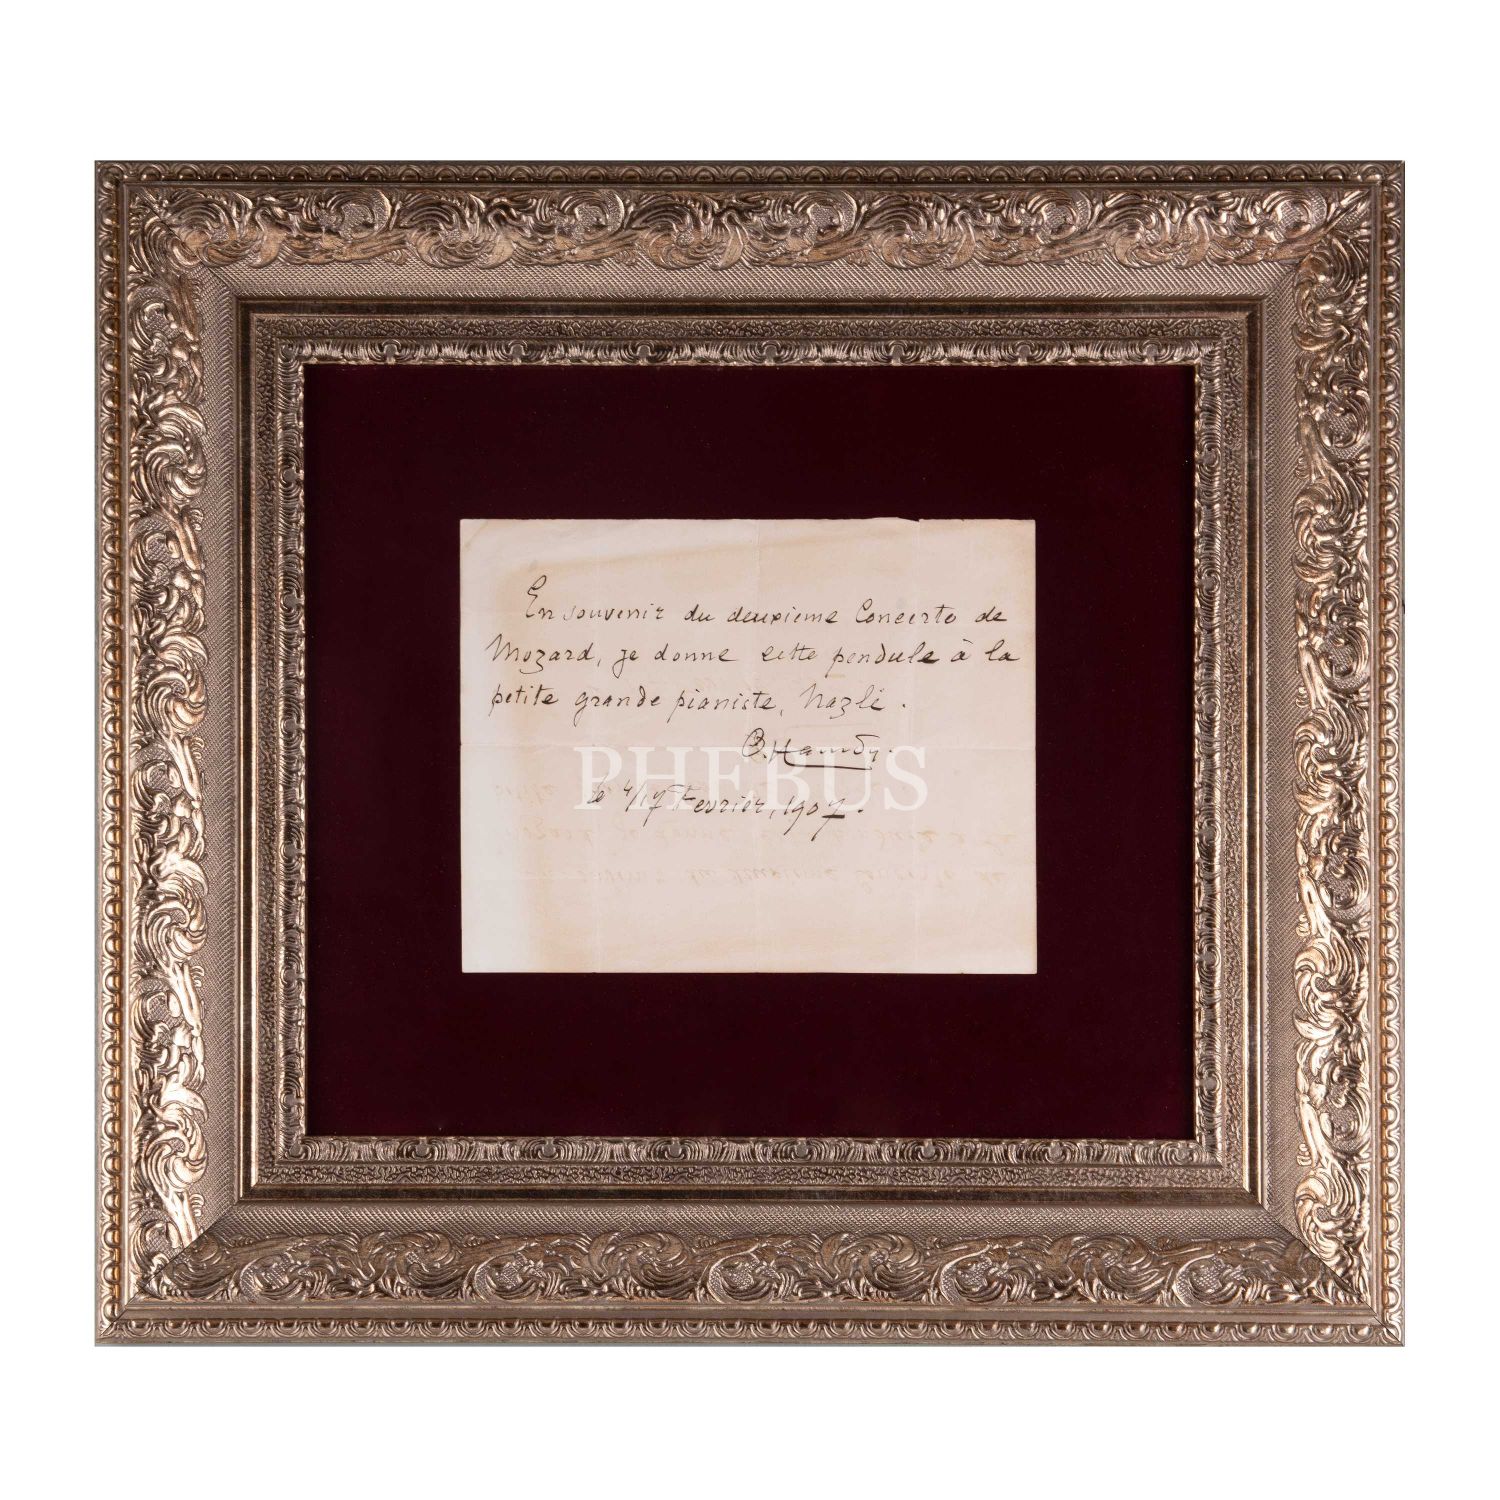 En souvenir du deuxieme Concerto de
Mozard, je donne cette pendule à la
petite grande pianiste, Nazli.
O. Hamdy.
PHEBUS
le 4/17 Fevrier, 1907.